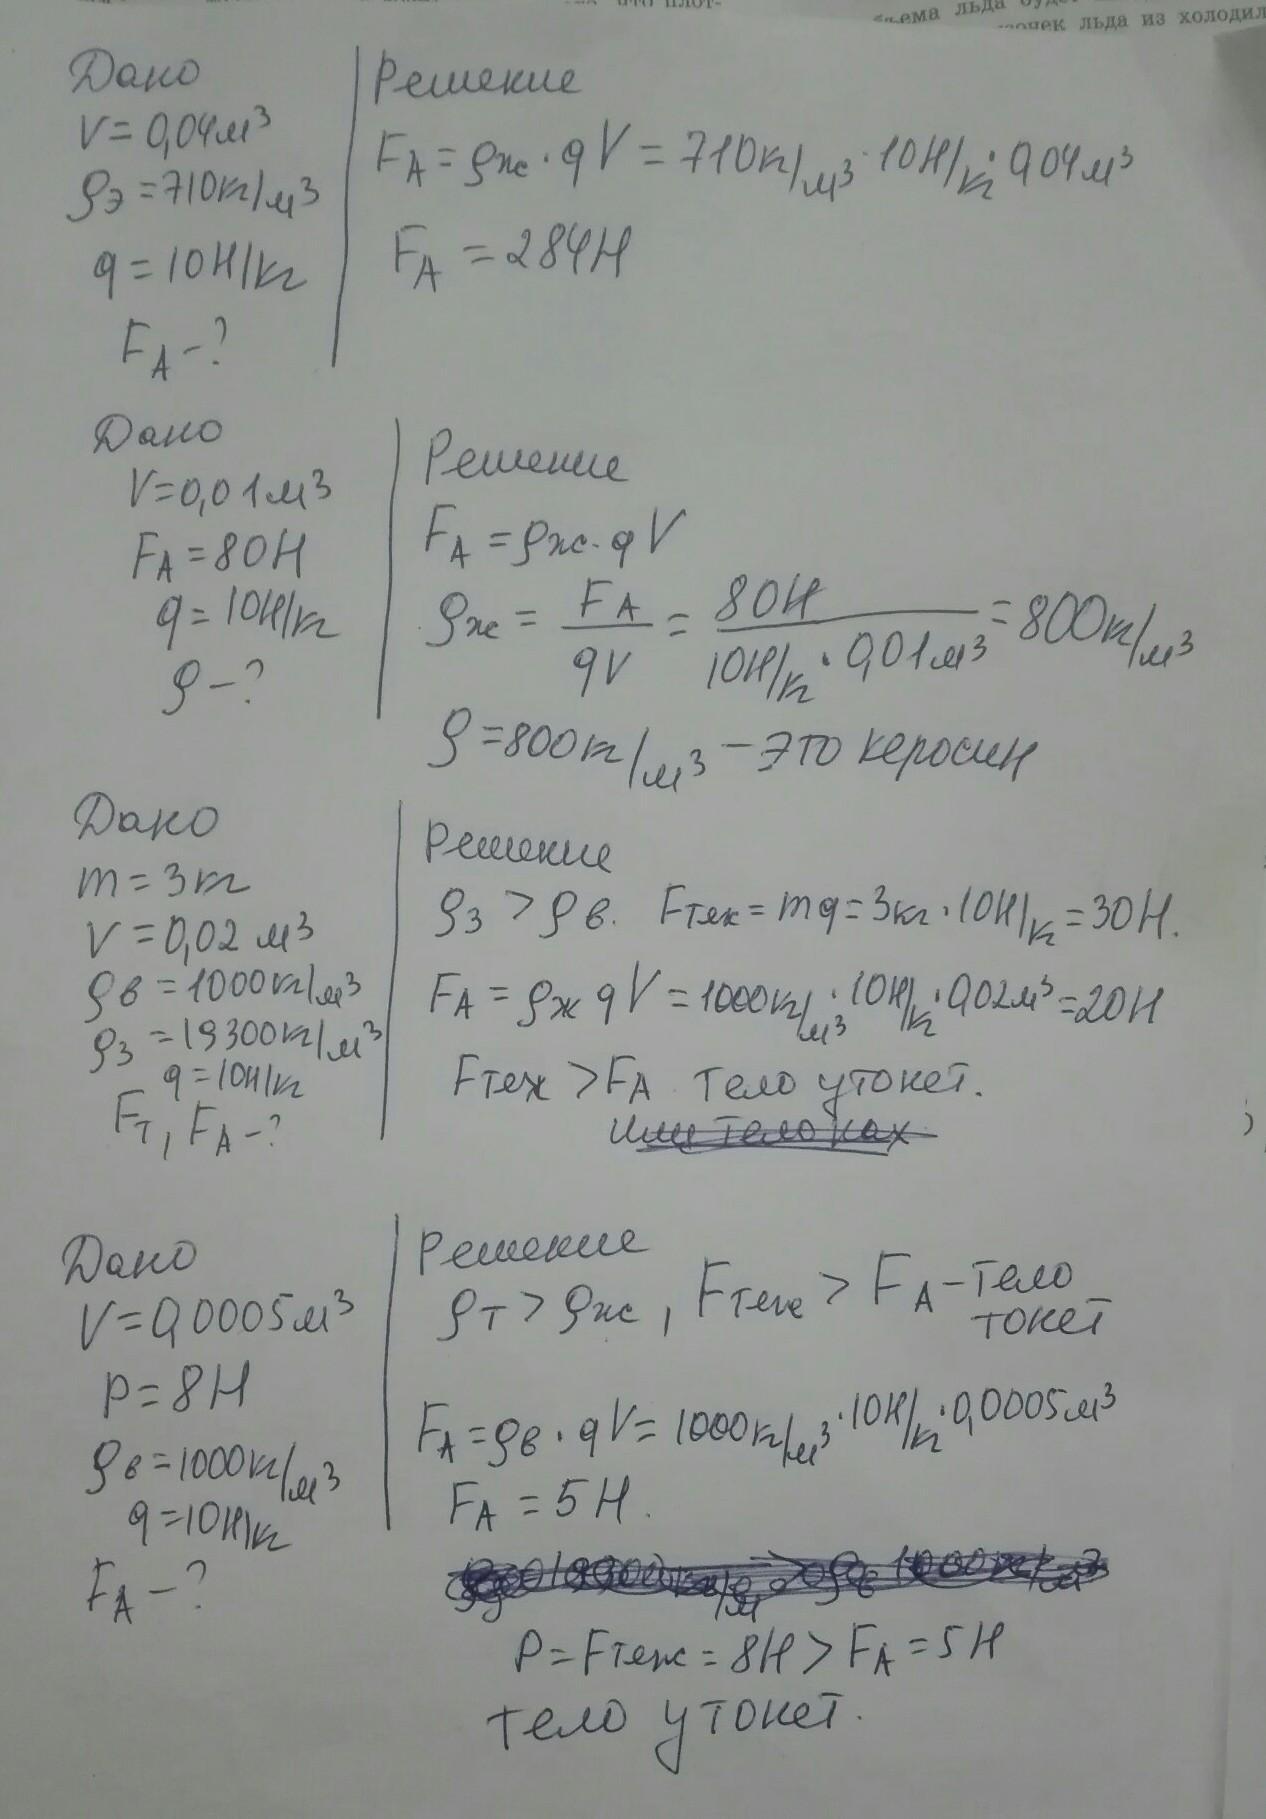 ъема льда
льда из холодил
Дано
V = 0,04м³
ρэ = 710кг/м³
g = 10Н/кг
FА - ?
Решение
FА = ρж · gV = 710кг/м³ · 10Н/кг · 0,04м³
FА = 284Н
Дано
V = 0,01м³
FА = 80Н
g = 10Н/кг
ρ - ?
Решение
FА = ρж · gV
ρж = FА/gV = 80Н/10Н/кг · 0,01м³ = 800кг/м³
ρ = 800кг/м³ - это керосин
Дано
m = 3кг
V = 0,02 м³
ρв = 1000кг/м³
ρз = 19300кг/м³
g = 10Н/кг
Fт, FА - ?
Решение
ρз > ρв. Fтяж = mg = 3кг · 10Н/кг = 30Н.
FА = ρж gV = 1000кг/м³ · 10Н/кг · 0,02м³ = 20Н
Fтяж > FА тело утонет.
или тело
Дано
V = 0,0005м³
P = 8Н
ρв = 1000кг/м³
g = 10Н/кг
FА - ?
Решение
ρт > ρж, Fтяж > FА - тело
тонет
FА = ρв · gV = 1000кг/м³ · 10Н/кг · 0,0005м³
FА = 5Н.
P = Fтяж = 8Н > FА = 5Н
тело утонет.